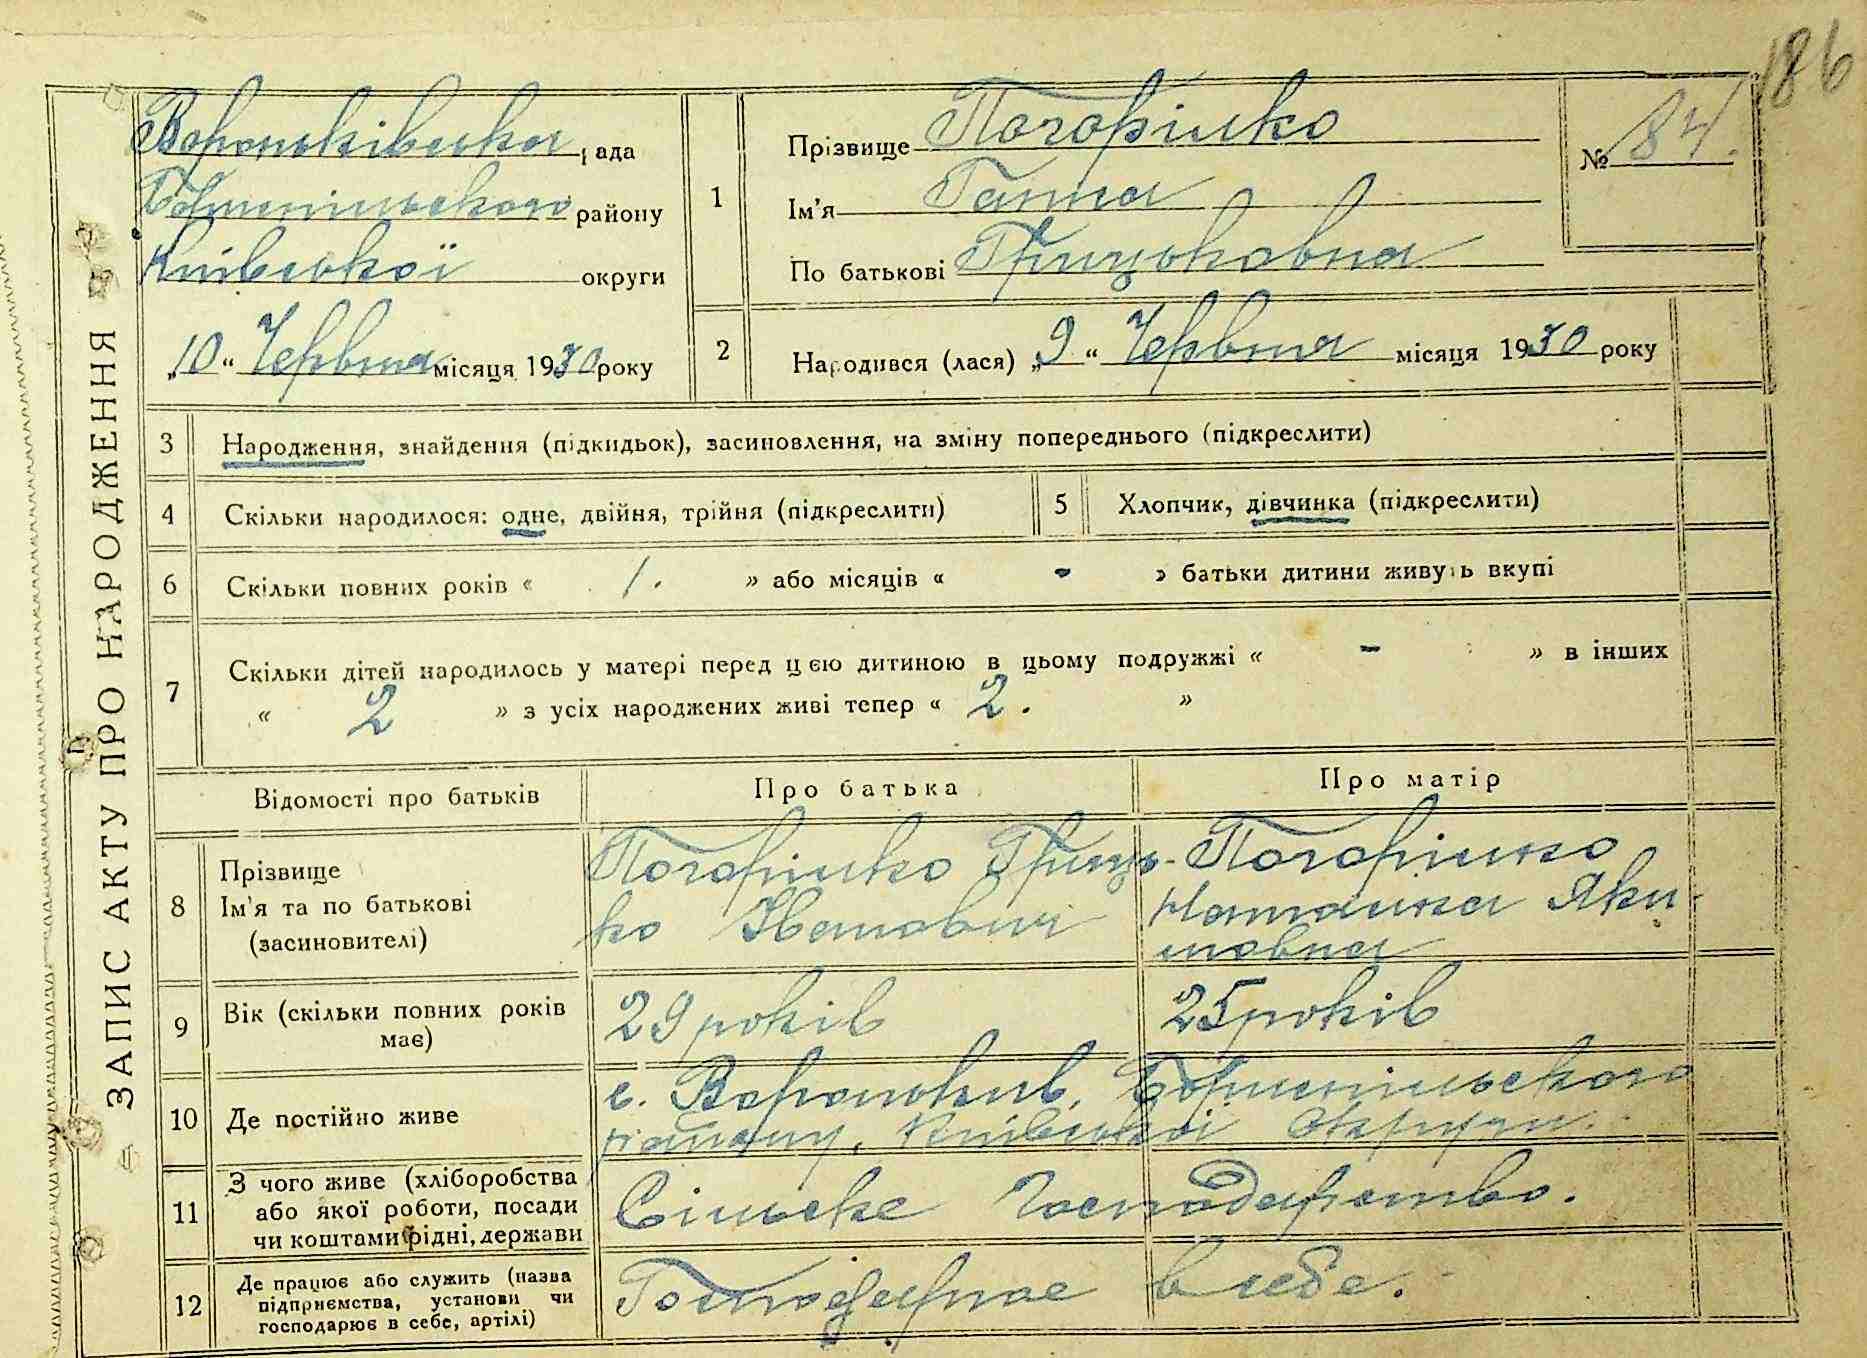 186
ЗАПИС АКТУ ПРО НАРОДЖЕННЯ
Вороньківська рада
Бориспільського району
Київської округи
„10“ Червня місяця 1930 року
1
Прізвище Погорілко
Ім'я Ганна
По батькові Грицьковна
№ 84.
2
Народився (лася) „9“ Червня місяця 1930 року
3 Народження, знайдення (підкидьок), засиновлення, на зміну попереднього (підкреслити)
4 Скільки народилося: одне, двійня, трійня (підкреслити)
5 Хлопчик, дівчинка (підкреслити)
6 Скільки повних років « 1. » або місяців « - » батьки дитини живуть вкупі
7 Скільки дітей народилось у матері перед цією дитиною в цьому подружжі « - » в інших
« 2 » з усіх народжених живі тепер « 2. »
Відомості про батьків
Про батька
Про матір
8
Прізвище
Ім'я та по батькові
(засиновителі)
Погорілко Гриць-
ко Іванович
Погорілко
Наталка Яки-
мовна
9
Вік (скільки повних років
має)
29 років
25 років
10 Де постійно живе
с. Вороньків, Бориспільського
району, Київської Округи.
11
З чого живе (хліборобства
або якої роботи, посади
чи коштами рідні, держави
Сільске Господарство.
12
Де працює або служить (назва
підприємства, установи чи
господарює в себе, артілі)
Господарює в себе.